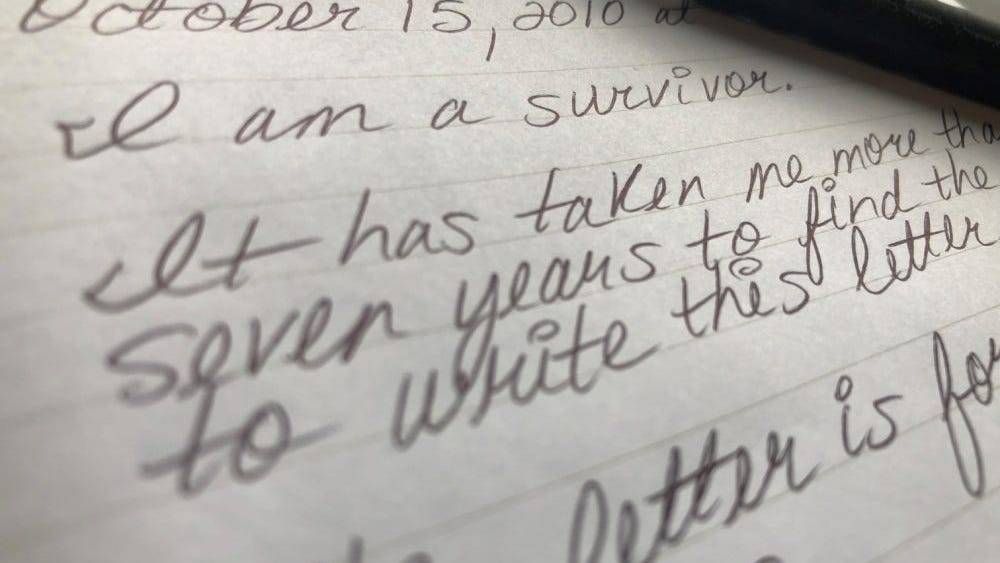 October 15, 2010 at
I am a survivor.
It has taken me more tha
seven years to find the
to write this letter
letter is for